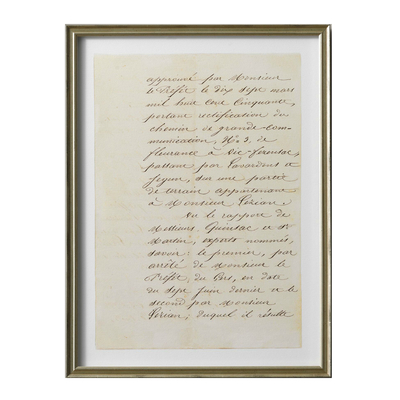 approuvé par Monsieur
le Préfet le dix sept mars
mil huit cent cinquante,
portant rectification du
chemin de grande com-
munication, N°. 3, de
fleurance à Vic-fezensac,
passant par Lavardens et
Jegun, sur une partie
de terrain appartenant
à Monsieur
Vu le rapport de
Messieurs et St
Martin, experts nommés,
savoir le premier, par
arrêté de Monsieur le
Préfet du Gers, en date
du sept Juin dernier et le
second par Monsieur
duquel il résulte